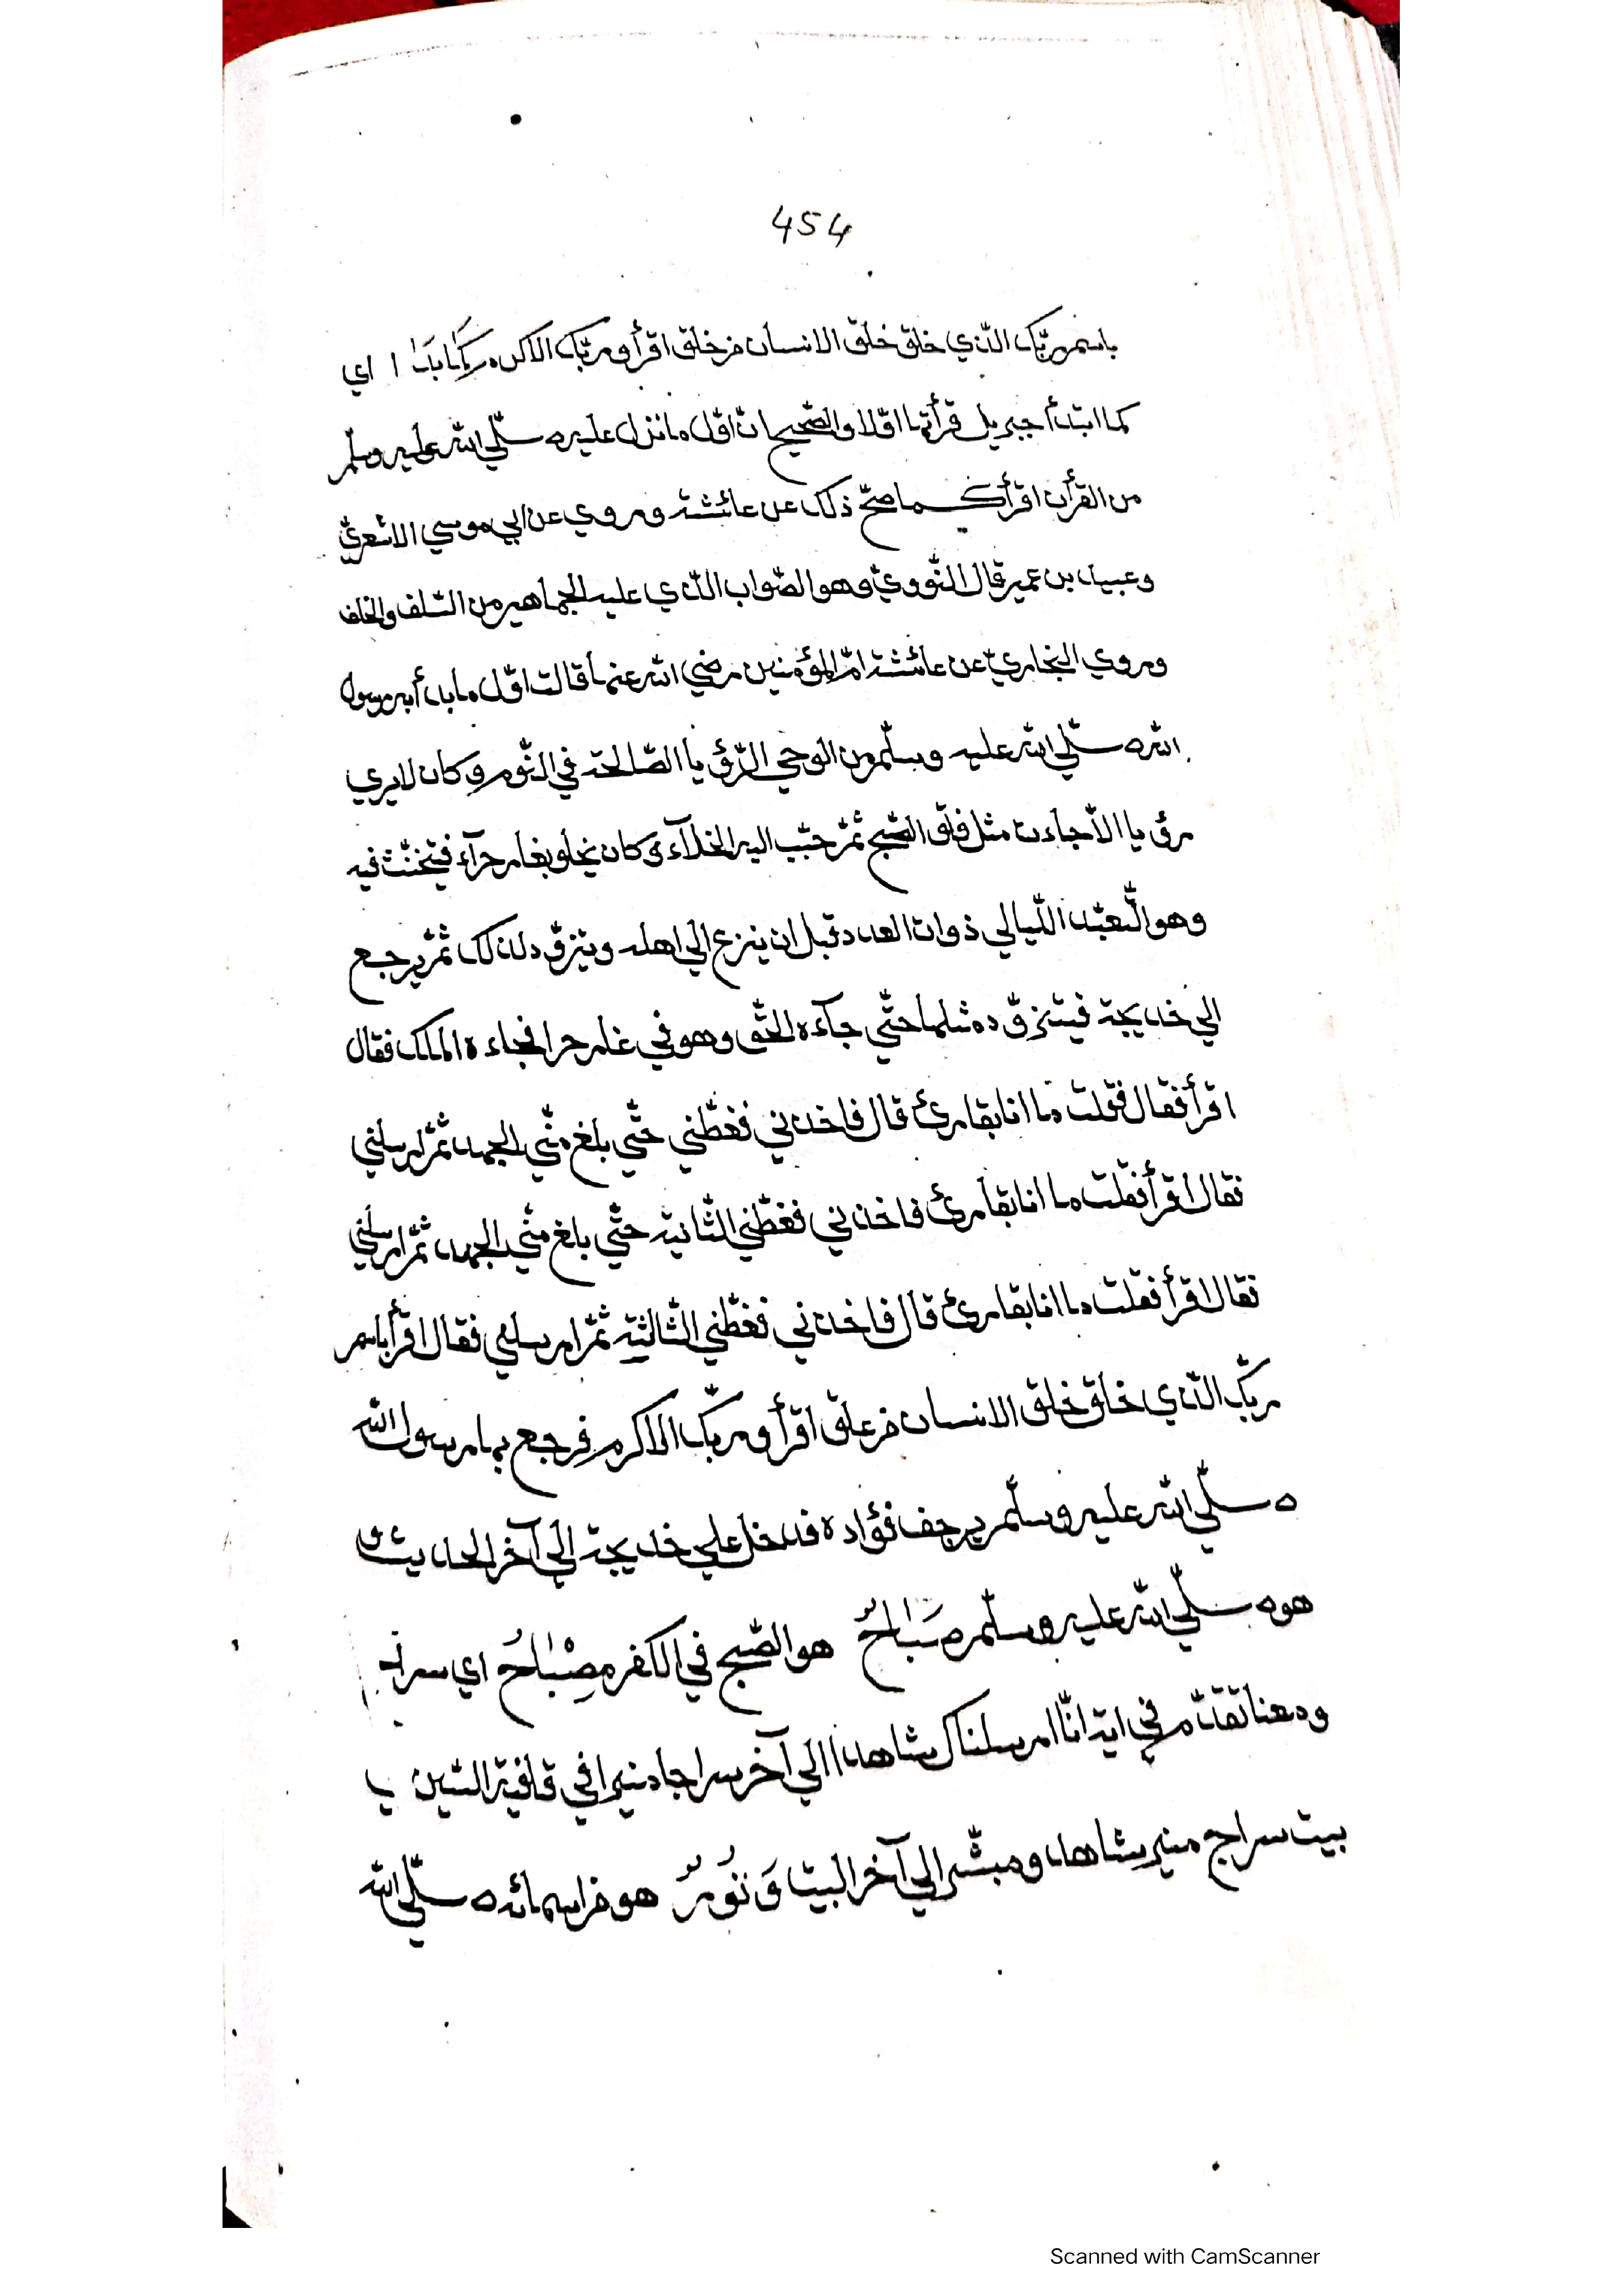 454
باسم ربّك الّذي خلق خلق الانسان من خلق اقرأ وربّك الاكرم كَمَا بَدَا اي
كما ابتدأ جبريل قرأتها اوّلا والصّحيح انّ اوّل ما نزل عليه صلّي الله عليه وسلّم
من القرأن اقرأ كما صحّ ذلك عن عائشة وروي عن ابي موسي الاشعريّ
وعبيد بن عمير قال النّوويّ وهو الصّواب الّذي عليه الجماهير من السّلف والخلف
وروي البخاريّ عن عائشة امّ المؤمنين رضي الله عنها قالت اوّل ما بدأ به رسول
الله صلّي الله عليه وسلّم من الوحي الرّؤيا الصّالحة في النّوم وكان لا يري
رؤيا الاّ جاءت مثل فلق الصّبح ثمّ حبّب اليه الخلآء وكان يخلو بغار حرآء فيتحنّث فيه
وهو التّعبّد اللّيالي ذوات العدد قبل ان ينزع الي اهله ويتزوّد لذلك ثمّ يرجع
الي خديجة فيتزوّد مثلها حتّي جآءه الحقّ وهو في غار حرا فجاءه الملك فقال
اقرأ فقال فقلت ما انا بقارئ قال فاخذني فغطّني حتّي بلغ منّي الجهد ثمّ ارسلني
فقال اقرأ فقلت ما انا بقارئ فاخذني فغطّني الثّانية حتّي بلغ منّي الجهد ثمّ ارسلني
فقال اقرأ فقلت ما انا بقارئ قال فاخذني فغطّني الثّالثية ثمّ ارسلني فقال اقرأ باسم
ربّك الّذي خلق خلق الانسان من علق اقرأ وربّك الاكرم فرجع بها رسول الله
صلّي الله عليه وسلّم يرجف فؤاده فدخل علي خديجة الي آخر الحديث و
هو صلّي الله عليه وسلّم صَبَاحٌ هو الصّبح في الكفر مِصْبَاحُ اي سراج
ومعنا تقدّم في اية انّا ارسلناك شاهدا الي آخر سراجا منيرا في قافية السّين
بيت سراج منير شاهد ومبشّر الي آخر البيت وَنُورٌ هو من اسمائه صلّي الله
Scanned with CamScanner